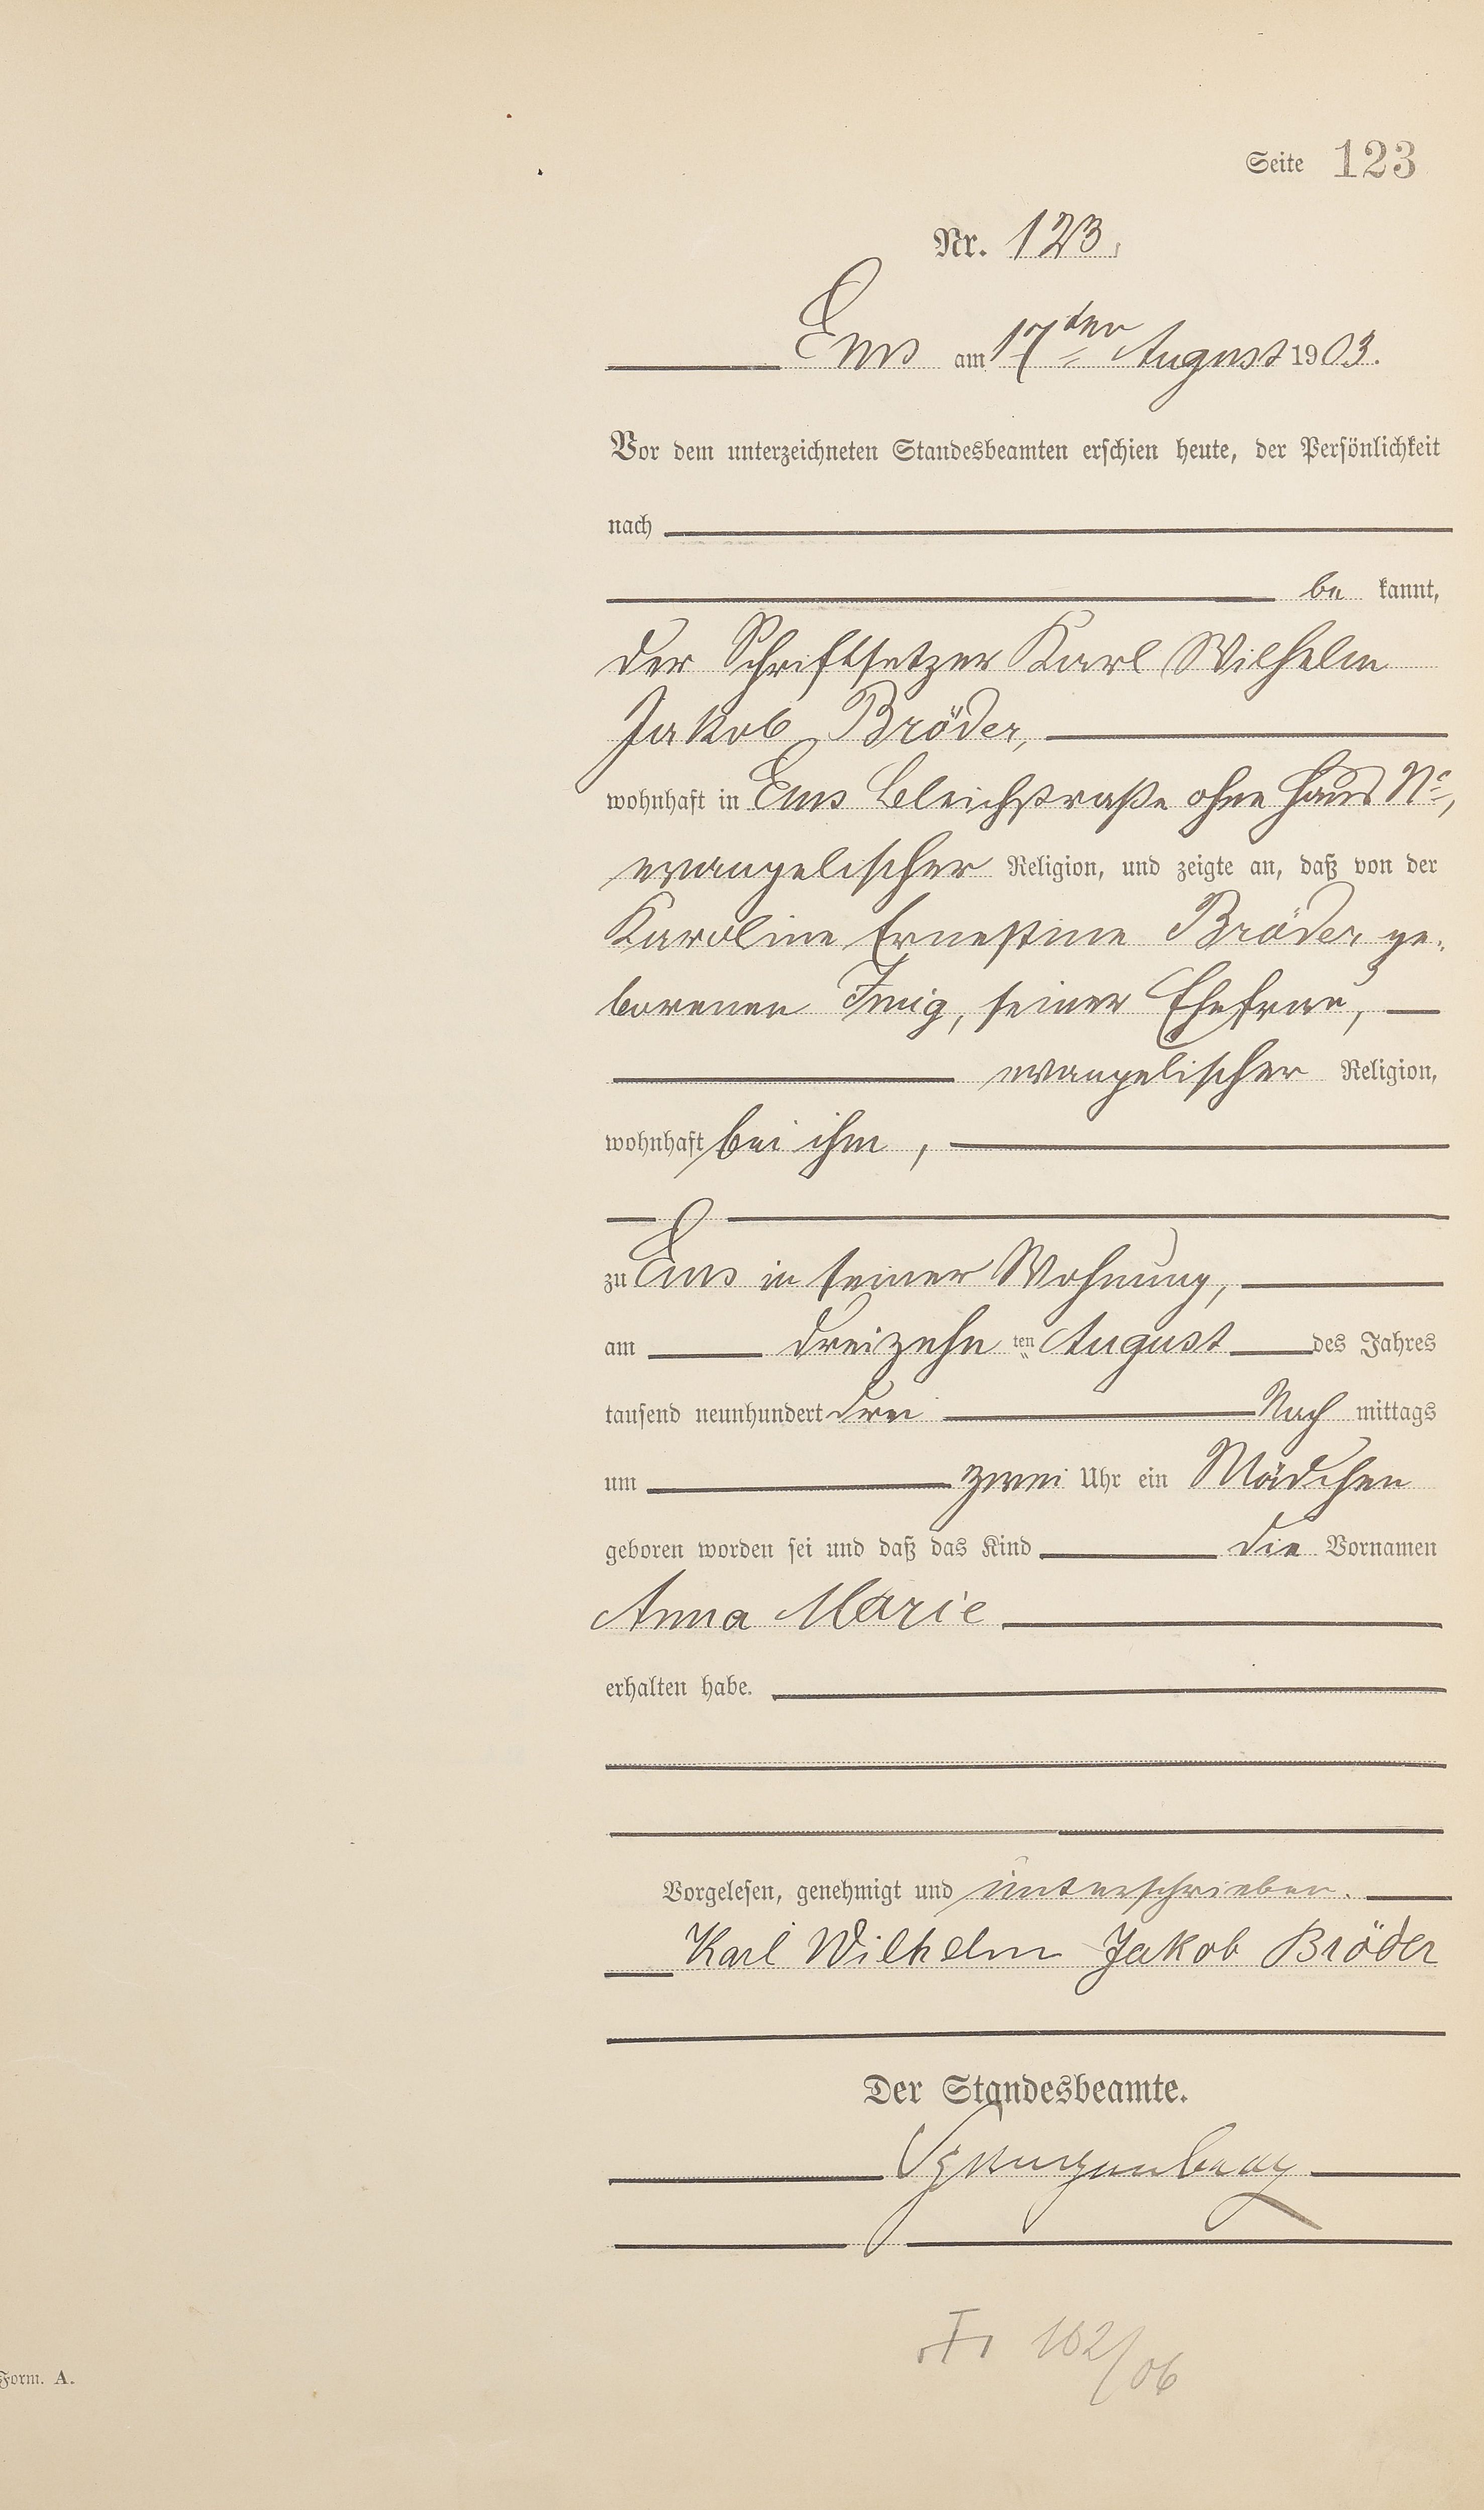 Seite 123
Nr. 123.
Ems am 17ten August 1903.
Vor dem unterzeichneten Standesbeamten erschien heute, der Persönlichkeit
nach
be kannt,
der Schriftsetzer Karl Wilhelm
Jakob Bröder,
wohnhaft in Ems Bleichstraße ohne Haus No,
evangelischer Religion, und zeigte an, daß von der
Karoline Ernestine Bröder ge-
borenen Imig, seiner Ehefrau,
evangelischer Religion,
wohnhaft bei ihm,
zu Ems in seiner Wohnung,
am dreizehn ten August des Jahres
tausend neunhundert drei Nach mittags
um zwei Uhr ein Mädchen
geboren worden sei und daß das Kind die Vornamen
Anna Marie
erhalten habe.
Vorgelesen, genehmigt und unterschrieben.
Karl Wilhelm Jakob Bröder
Der Standesbeamte.
102/06
Form. A.